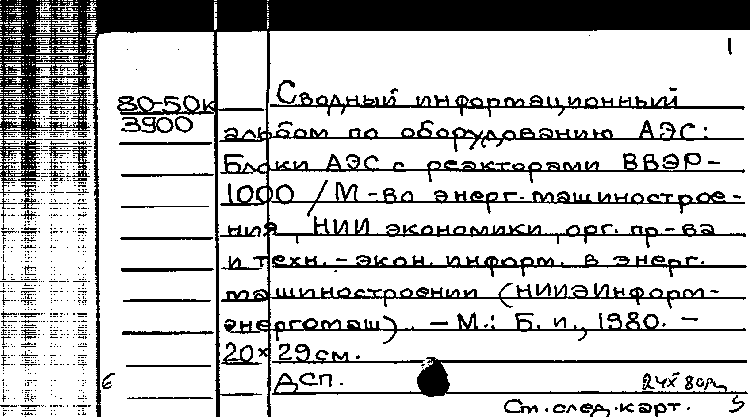 1
80-50к
3900
Сводный информационный
альбом по оборудованию АЭС:
Блоки АЭС с реакторами ВВЭР-
1000 / М-во энерг. машинострое-
ния, НИИ экономики, орг. пр-ва
и техн.-экон. информ. в энерг.
машиностроении (НИИЭИнформ-
энергомаш). - М.: Б. и., 1980. -
20×29 см.
ДСП.
б
См. след. карт.